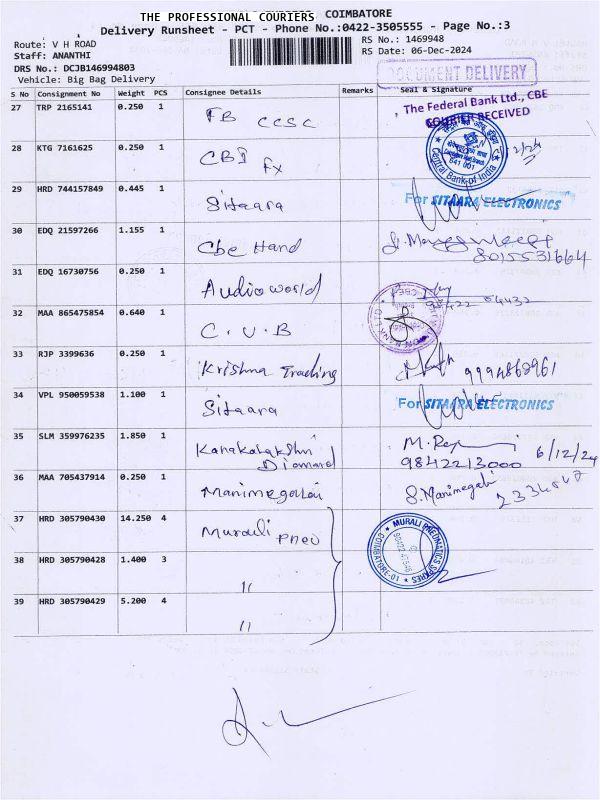 THE PROFESSIONAL COURIERS COIMBATORE
Delivery Runsheet - PCT - Phone No.:0422-3505555 - Page No.:3
Route: V H ROAD
RS No.: 1469948
Staff: ANANTHI
RS Date: 06-Dec-2024
DRS No.: DCJB146994803
Vehicle: Big Bag Delivery
DOCUMENT DELIVERY
S No Consignment No Weight PCS Consignee Details Remarks Seal & Signature
The Federal Bank Ltd., CBE
COURIER RECEIVED
27 TRP 2165141 0.250 1 FB CCSC
28 KTG 7161625 0.250 1 CBI Fx
Central Bank of India
641 001
29 HRD 744157849 0.445 1 Sitaara For SITAARA ELECTRONICS
30 EDQ 21597266 1.155 1 Cbe Hand
8015531664
31 EDQ 16730756 0.250 1 Audioworld
98422 04432
32 MAA 865475854 0.640 1 C.U.B
33 RJP 3399636 0.250 1 Krishna Trading 9994868961
34 VPL 950059538 1.100 1 Sitaara For SITAARA ELECTRONICS
35 SLM 359976235 1.850 1 Kanakalakshmi Diamond
9842213000 6/12/24
36 MAA 705437914 0.250 1 Manimegalai S. Manimegalai
37 HRD 305790430 14.250 4 Murali Pneu
MURALI PNEUMATICS SPARES
COIMBATORE-01
38 HRD 305790428 1.400 3 "
39 HRD 305790429 5.200 4 "